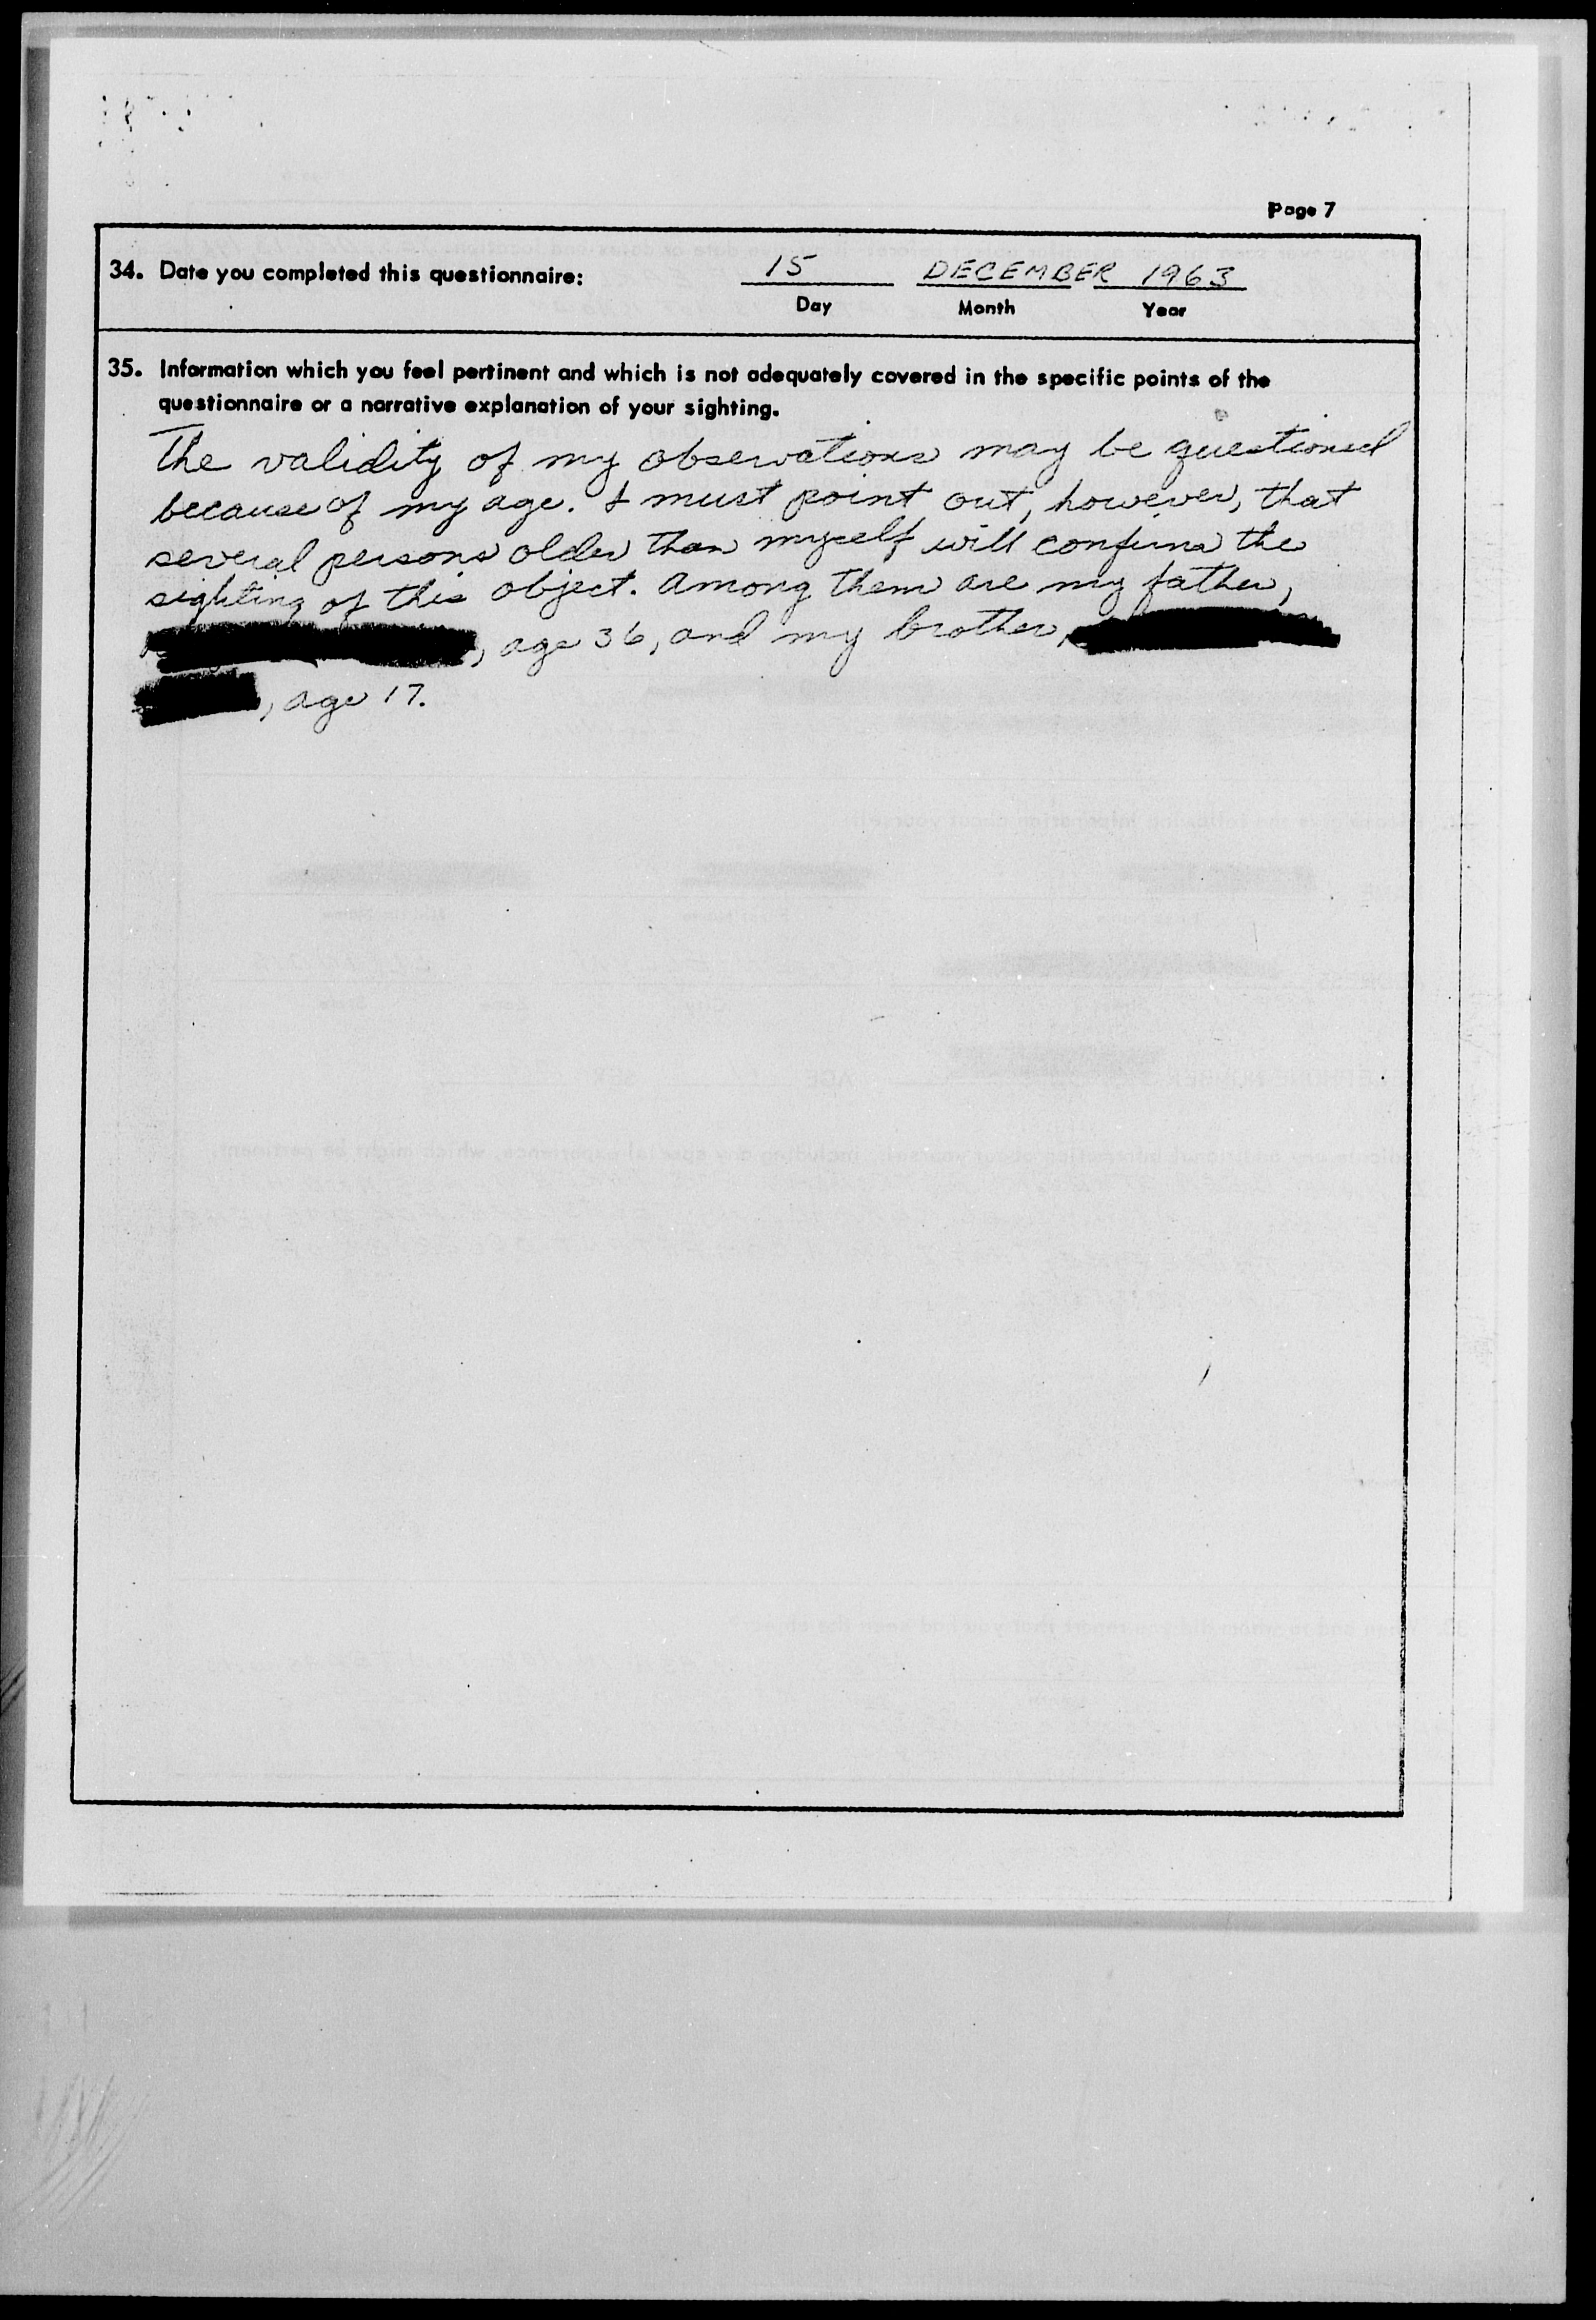 Page 7
34. Date you completed this questionnaire: 15 DECEMBER 1963
Day Month Year
35. Information which you feel pertinent and which is not adequately covered in the specific points of the
questionnaire or a narrative explanation of your sighting.
The validity of my observations may be questioned
because of my age. I must point out, however, that
several persons older than myself will confirm the
sighting of this object. Among them are my father,
, age 36, and my brother,
, age 17.